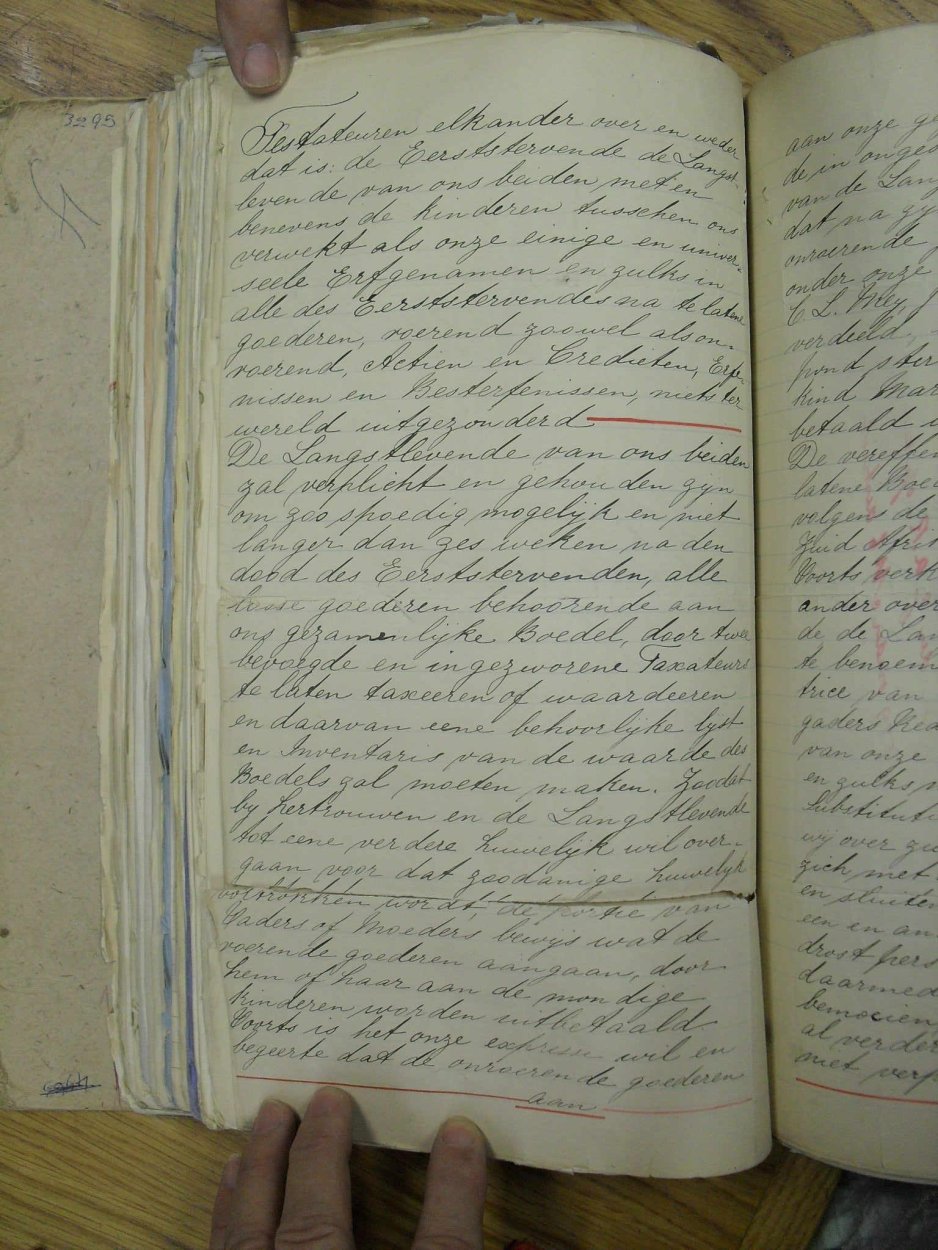 3295
Testateuren elkander over en weder
dat is: de Eerststervende de Langst-
levende van ons beiden met en
benevens de kinderen tusschen ons
verwekt als onze einige en univer-
seele Erfgenamen en zulks in
alle des Eerststervendes na te latene
goederen, roerend zoowel als on-
roerend, Actien en Credieten, Erfe-
nissen en Besterfenissen, niets ter
wereld uitgezonderd
De Langstlevende van ons beiden
zal verplicht en gehouden zyn
om zoo spoedig mogelyk en niet
langer dan zes weken na den
dood des Eerststervenden, alle
losse goederen behoorende aan
ons gezamenlijke Boedel, door twee
bevoegde en ingezworene Taxateurs
te laten taxeeren of waardeeren
en daarvan eene behoorlijke lyst
en Inventaris van de waarde des
Boedels zal moeten maken. Zoodat
by hertrouwen en de Langstlevende
tot eene verdere huwelyk wil over-
gaan voor dat zoodanige huwelyk
voltrokken wordt, de portie van
Vaders of Moeders bewijs wat de
roerende goederen aangaan, door
hem of haar aan de mondige
kinderen worden uitbetaald
Voorts is het onze expresse wil en
begeerte dat de onroerende goederen
aan
aan onze
de in
van de
dat na
onroerende
onder onze
C. L. Mey,
verdeeld,
pond
kind
betaald
De
latene
volgens de
Zuid
Voorts
ander over
de de
te
trice van
gaders
van onze
en zulks
wij over
zich met
en
een in an
drost
daarmed
al verder
niet